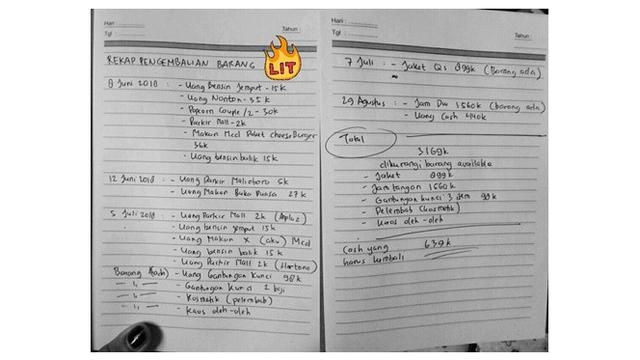 Hari :
Tgl :
Tahun :
REKAP PENGEMBALIAN BARANG
LIT
8 Juni 2018 : - Uang Bensin Jemput - 15k
- Uang Nonton - 35k
- Popcorn Couple /2 - 30k
- Parkir Mall - 2k
- Makan Mcd Paket cheese Burger
36k
- Uang bensin balik 15k
12 Juni 2018 : - Uang Parkir Malioboro 5k
- Uang Makan Buka Puasa 27k
5 Juli 2018 - Uang Parkir Mall 2k
- Uang bensin jemput 15k
- Uang Makan X (aku) Mcd
- Uang bensin balik 15k
- Uang Parkir Mall 2k (Hartono)
Barang - Uang Gantungan Kunci 98k
- Gantungan Kunci 2 biji
- Kosmetik (pelembab)
- Kaos oleh-oleh
Hari :
Tgl :
Tahun :
7 Juli : - Jaket Qs 899k (Barang ada)
29 Agustus : - Jam Dw 1560k (barang ada)
- Uang Cash 440k
Total
3169k
dikurangi barang available
- Jaket 899k
- Jam tangan 1560k
- Gantungan kunci 3 item 98k
- Pelembab (kosmetik)
- Kaos oleh-oleh
Cash yang 639k
harus kembali